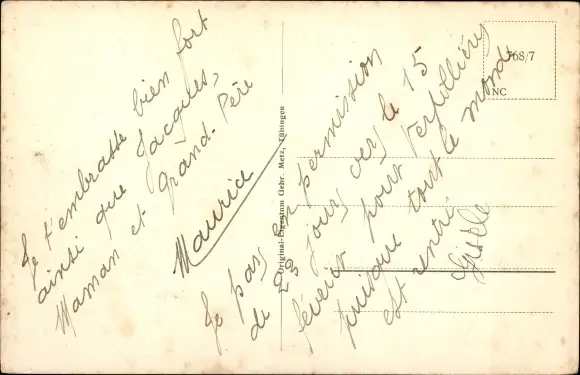 Je t'embrasse bien fort
ainsi que Jacques,
Maman et Grand-Père
Maurice
Je pars en permission
de 22 jours vers le 15
février pour Verpillières
puisque tout le monde
est rentré
Gisèle
Original-Eigentum Gebr. Metz, Tübingen
768/7
NC